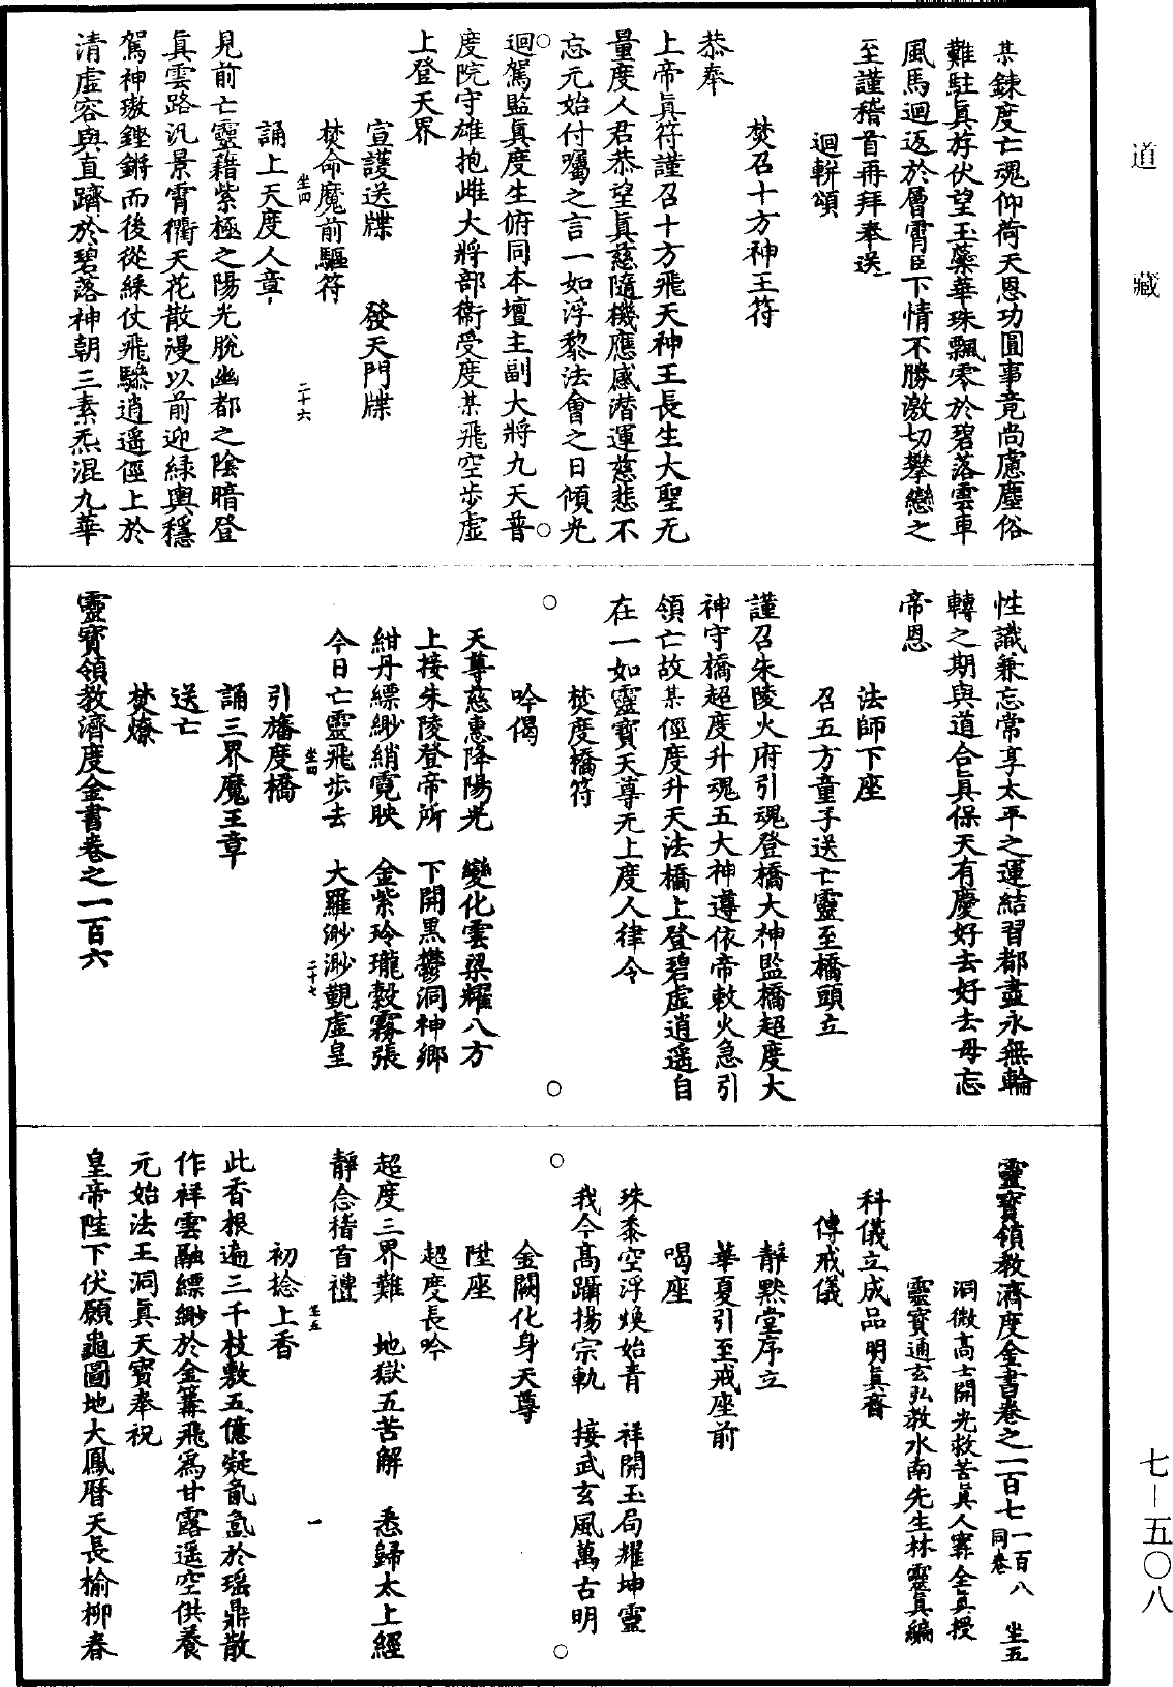 道藏
某鍊度亡魂仰荷天恩功圓事竟尚慮塵俗
難駐真斿伏望玉蘂華珠飄零於碧落雲車
風馬迴返於層霄臣下情不勝激切攀戀之
至謹稽首再拜奉送
迴軿頌
焚召十方神王符
恭奉
上帝真符謹召十方飛天神王長生大聖无
量度人君恭望真慈隨機應感潜運慈悲不
忘元始付囑之言一如浮黎法會之日傾光
迴駕監真度生俯同本壇主副大將九天普
度院守雄抱雌大將部衛受度某飛空步虛
上登天界
宣護送牒　發天門牒
焚命魔前驅符
坐四　二十六
誦上天度人章
見前亡靈藉紫極之陽光脫幽都之陰暗登
真雲路汎景霄衢天花散漫以前迎緑輿穩
駕神璈鏗鏘而後從綵仗飛驂逍遥徑上於
清虛容與直躋於碧落神朝三素炁混九華
性識兼忘常享太平之運結習都盡永無輪
轉之期與道合真保天有慶好去好去毋忘
帝恩
法師下座
召五方童子送亡靈至橋頭立
謹召朱陵火府引魂登橋大神監橋超度大
神守橋超度升魂五大神遵依帝敕火急引
領亡故某徑度升天法橋上登碧虛逍遥自
在一如靈寶天尊无上度人律令
焚度橋符
吟偈
天尊慈惠降陽光　變化雲梁耀八方
上接朱陵登帝所　下開黑鬱洞神鄉
紺丹縹緲綃霓映　金紫玲瓏縠霧張
今日亡靈飛步去　大羅渺渺覲虛皇
坐四　二十七
引旛度橋
誦三界魔王章
送亡
焚燎
靈寶領教濟度金書卷之一百六
靈寶領教濟度金書卷之一百七 一百八同卷 坐五
洞微高士開光救苦真人甯全真授
靈寶通玄弘教水南先生林靈真編
科儀立成品 明真齋
傳戒儀
靜黙堂序立
華夏引至戒座前
喝座
珠黍空浮煥始青　祥開玉局耀坤靈
我今高躡揚宗軌　接武玄風萬古明
金闕化身天尊
陞座
超度長吟
超度三界難　地獄五苦解　悉歸太上經
靜念稽首禮
坐五　一
初捻上香
此香根遍三千枝敷五億凝氤氳於瑶鼎散
作祥雲融縹緲於金篝飛爲甘露遥空供養
元始法王洞真天寳奉祝
皇帝陛下伏願龜圖地大鳳曆天長榆柳春
七－五〇八